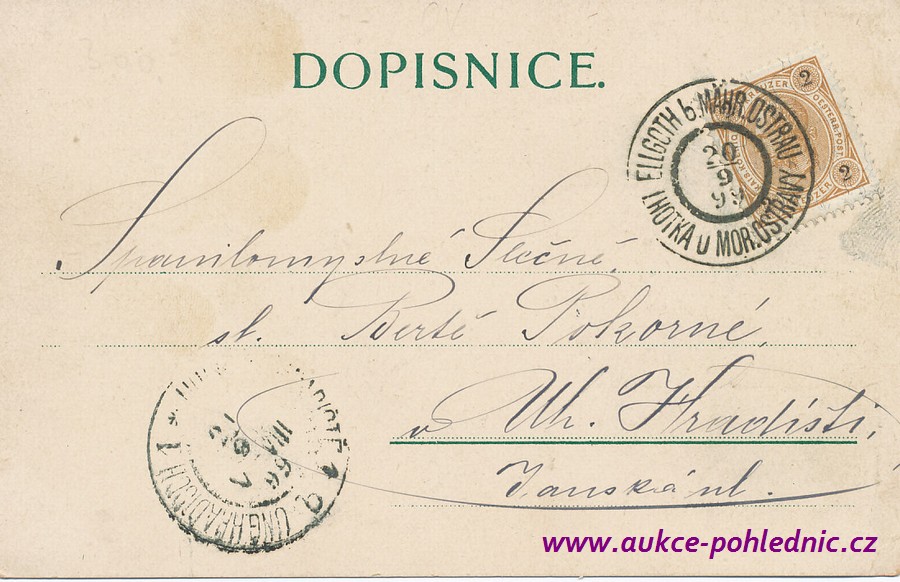 DOPISNICE.
2 2
OESTERR. POST.
ELLGOTH b. MÄHR. OSTRAU
20
9
99
LHOTKA u MOR. OSTRAVY
Spanilomyslné Slečně,
sl. Bertě Pokorné,
v Uh. Hradišti,
Janská ul.
UNG. HRADISCH 1
www.aukce-pohlednic.cz